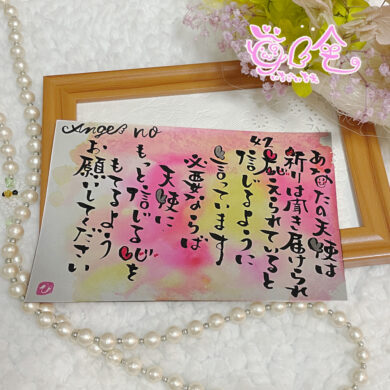 Angel no
あなたの天使は
祈りは聞き届けられ
叶えられていると
信じるように
言っています
必要ならば
天使に
もっと信じる心を
もてるよう
お願いしてください